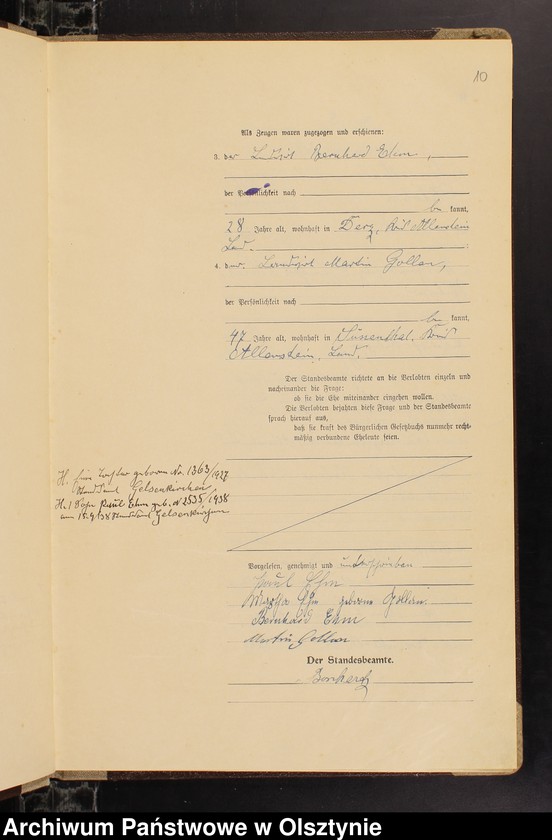 10
Als Zeugen waren zugezogen und erschienen:
3. der Bernhard Ehm,
der Persönlichkeit nach
be kannt,
28 Jahre alt, wohnhaft in Derz, Allenstein
Land.
4. der Landwirt Martin Gollan,
der Persönlichkeit nach
be kannt,
47 Jahre alt, wohnhaft in
Allenstein, Land.
Der Standesbeamte richtete an die Verlobten einzeln und
nacheinander die Frage:
ob sie die Ehe miteinander eingehen wollen.
Die Verlobten bejahten diese Frage und der Standesbeamte
sprach hierauf aus,
daß sie kraft des Bürgerlichen Gesetzbuchs nunmehr recht-
mäßig verbundene Eheleute seien.
H. eine Tochter geboren No. 1363/1927
Standesamt Gelsenkirchen
H. 1 Paul Ehm geb. N 2535/1938
am 15.9.38 Standesamt Gelsenkirchen
Vorgelesen, genehmigt und unterschrieben
Paul Ehm
Martha Ehm geborene Gollan.
Bernhard Ehm
Martin Gollan
Der Standesbeamte.
Archiwum Państwowe w Olsztynie